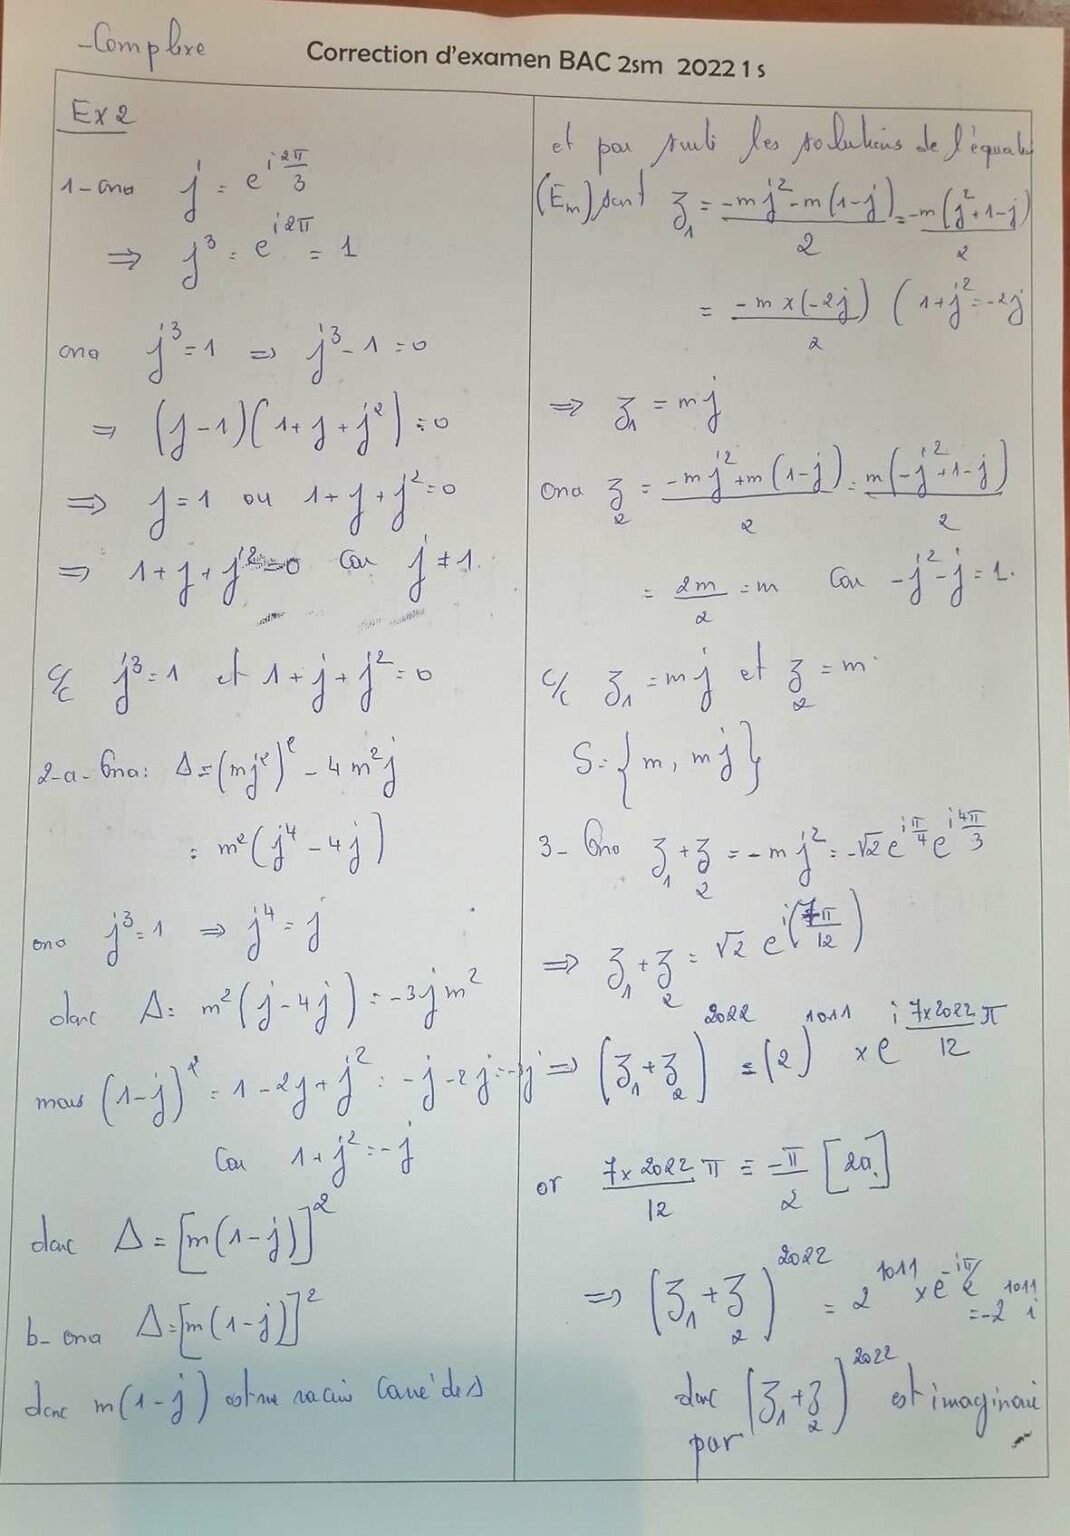 -Complexe
Correction d'examen BAC 2sm 2022 1 s
Ex 2
1-ona j = e^{i 2π/3}
⇒ j³ = e^{i2π} = 1
ona j³ = 1 ⇒ j³ - 1 = 0
⇒ (j - 1)(1 + j + j²) = 0
⇒ j = 1 ou 1 + j + j² = 0
⇒ 1 + j + j² = 0 Car j ≠ 1.
C/C j³ = 1 et 1 + j + j² = 0
2-a- Ona: Δ = (mj²)² - 4m²j
= m²(j⁴ - 4j)
ona j³ = 1 ⇒ j⁴ = j
donc Δ = m²(j - 4j) = -3jm²
mais (1 - j)² = 1 - 2j + j² = -j - 2j = -3j
Car 1 + j² = -j
donc Δ = [m(1 - j)]²
b- ona Δ = [m(1 - j)]²
donc m(1 - j) est une racine Carrée de Δ
et par suite les solutions de l'équation
(Em) sont z₁ = (-mj² - m(1 - j))/2 = -m(j² + 1 - j)/2
= -m×(-2j)/2 (1 + j² = -2j
⇒ z₁ = mj
Ona z₂ = (-mj² + m(1 - j))/2 = m(-j² + 1 - j)/2
= 2m/2 = m Car -j² - j = 1.
C/C z₁ = mj et z₂ = m
S = {m, mj}
3- Ona z₁ + z₂ = -mj² = -√2 e^{iπ/4} e^{i4π/3}
⇒ z₁ + z₂ = √2 e^{i(7π/12)}
⇒ (z₁ + z₂)^{2022} = (2)^{1011} × e^{i (7×2022/12) π}
or (7×2022/12) π ≡ -π/2 [2π]
⇒ (z₁ + z₂)^{2022} = 2^{1011} × e^{-iπ/2}
= -2^{1011} i
donc (z₁ + z₂)^{2022} est imaginaire
pur